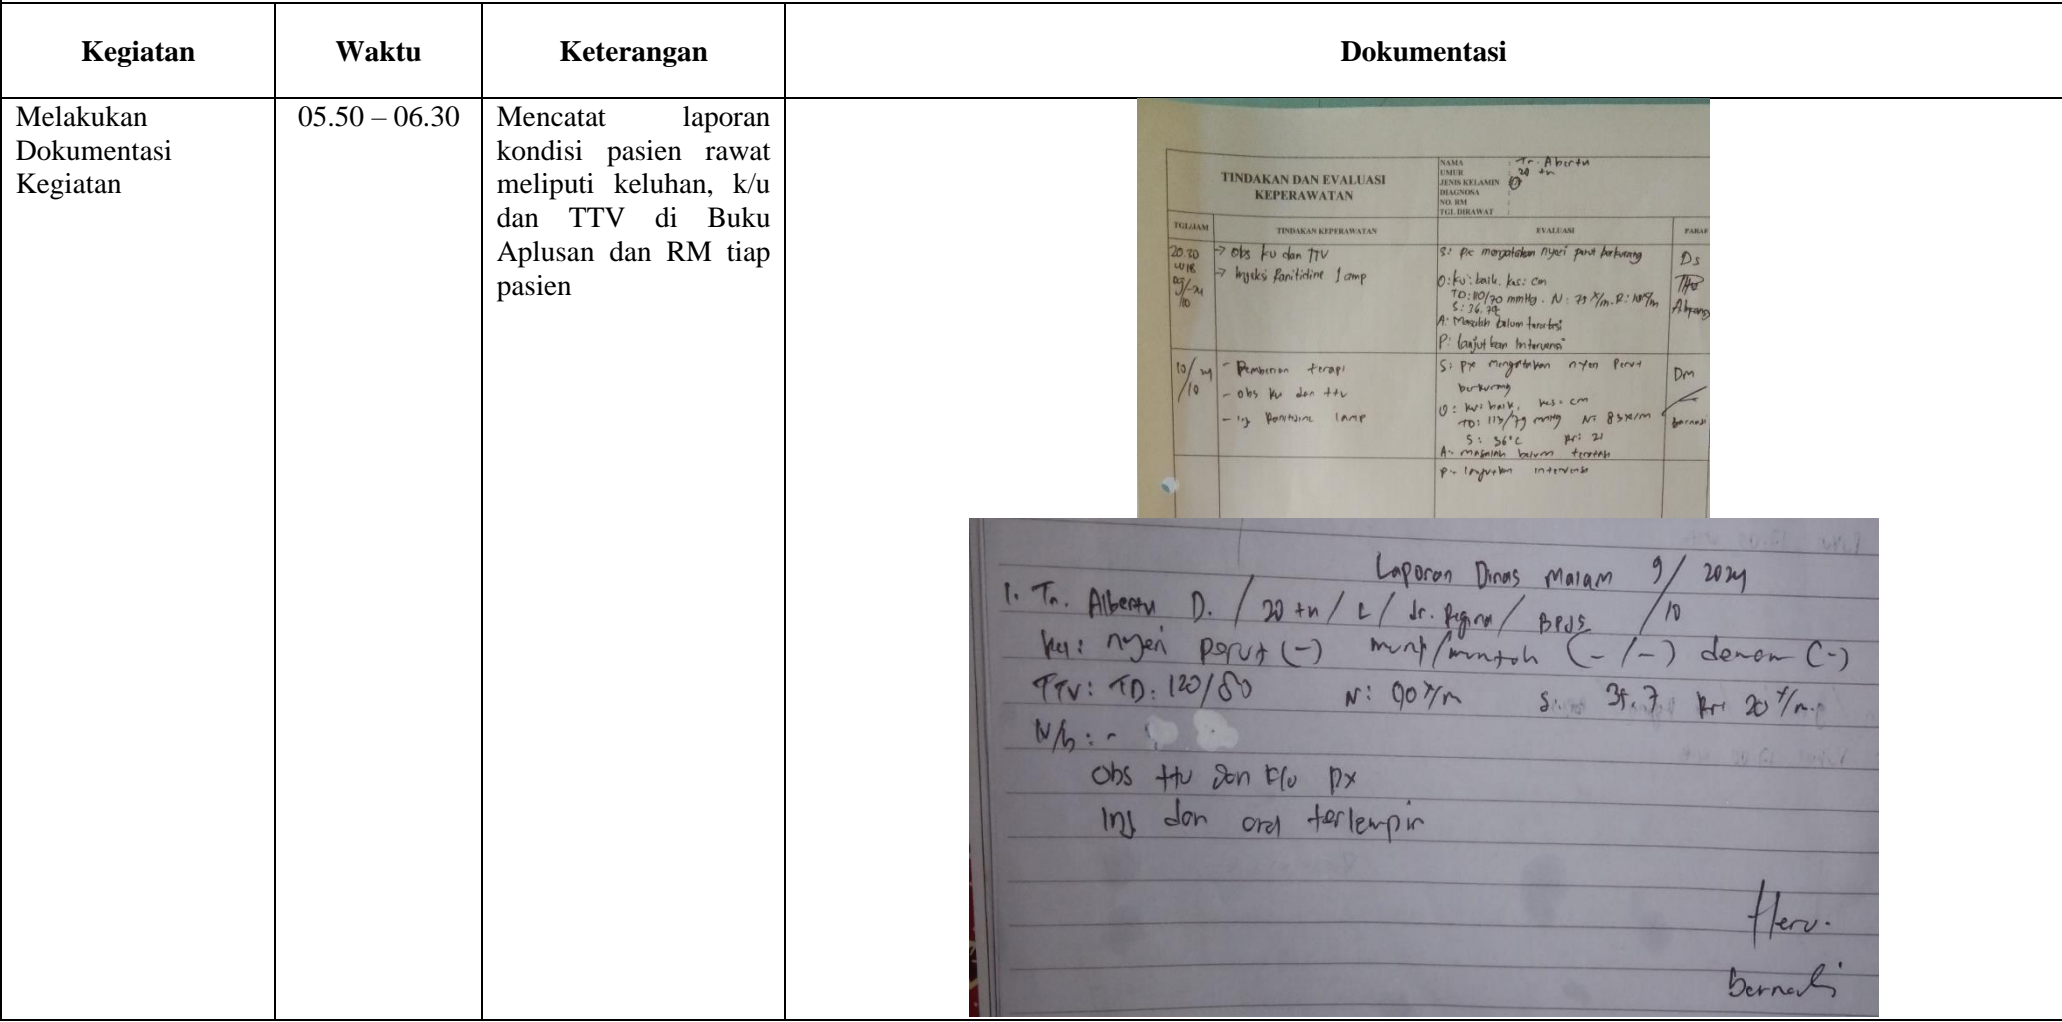 Kegiatan Waktu Keterangan Dokumentasi
Melakukan
Dokumentasi
Kegiatan
05.50 – 06.30
Mencatat laporan
kondisi pasien rawat
meliputi keluhan, k/u
dan TTV di Buku
Aplusan dan RM tiap
pasien
TINDAKAN DAN EVALUASI
KEPERAWATAN
NAMA : Tn. Albertu
UMUR : 20 tn
JENIS KELAMIN
DIAGNOSA
NO. RM
TGL DIRAWAT
TGL/JAM TINDAKAN KEPERAWATAN EVALUASI PARAF
20.30
WIB
→ Obs ku dan TTV
→ Injeksi Ranitidine 1 amp
S: px mengatakan nyeri perut berkurang
O: ku: baik, kes: cm
TD: 110/70 mmHg. N: 79 x/m. R:
S: 36.
A: Masalah belum teratasi
P: lanjutkan Intervensi
Ds
10/24
/10
- Pemberian terapi
- obs ku dan ttv
- inj Ranitidine 1 amp
S: px mengatakan nyeri perut
berkurang
O: ku: baik, kes: cm
TD: 113/79 mmHg N: 83x/m
S: 36°C Rr: 21
A: masalah belum teratasi
P: lanjutkan intervensi
Dm
Laporan Dinas Malam 9/ 2024
/10
1. Tn. Albertu D. / 20 tn / L / dr. Regina / BPJS
kel: nyeri perut (-) mual/muntah (-/-) demam (-)
TTV: TD: 120/80 N: 90 x/m S: 35.7 Rr: 20 x/m.
N/b: -
Obs ttv dan k/u px
Inj dan oral terlampir